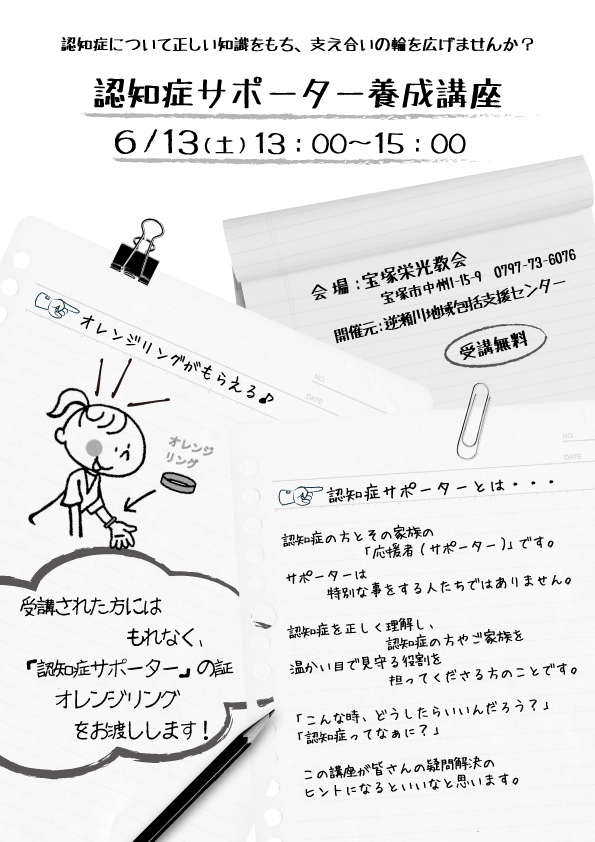 認知症について正しい知識をもち、支え合いの輪を広げませんか？
認知症サポーター養成講座
6/13(土)13：00～15：00
会場：宝塚栄光教会
宝塚市中州1-15-9　0797-73-6076
開催元：逆瀬川地域包括支援センター
受講無料
オレンジリングがもらえる♪
NO.
DATE
オレンジ
リング
受講された方には
もれなく、
『認知症サポーター』の証
オレンジリング
をお渡しします！
NO.
DATE
認知症サポーターとは・・・
認知症の方とその家族の
「応援者(サポーター)」です。
サポーターは
特別な事をする人たちではありません。
認知症を正しく理解し、
認知症の方やご家族を
温かい目で見守る役割を
担ってくださる方のことです。
「こんな時、どうしたらいいんだろう？」
「認知症ってなぁに？」
この講座が皆さんの疑問解決の
ヒントになるといいなと思います。